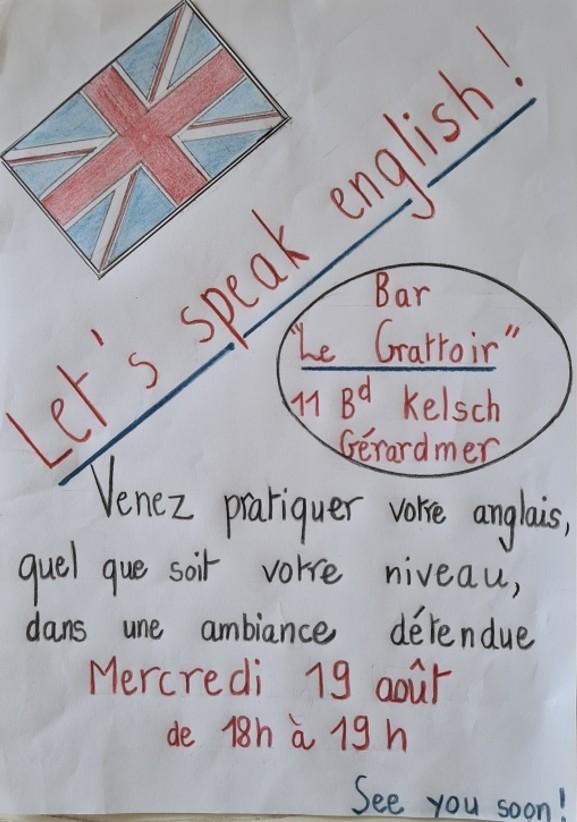 Let's speak english!
Bar
"Le Grattoir"
11 Bd Kelsch
Gérardmer
Venez pratiquer votre anglais,
quel que soit votre niveau,
dans une ambiance détendue
Mercredi 19 août
de 18h à 19h
See you soon!